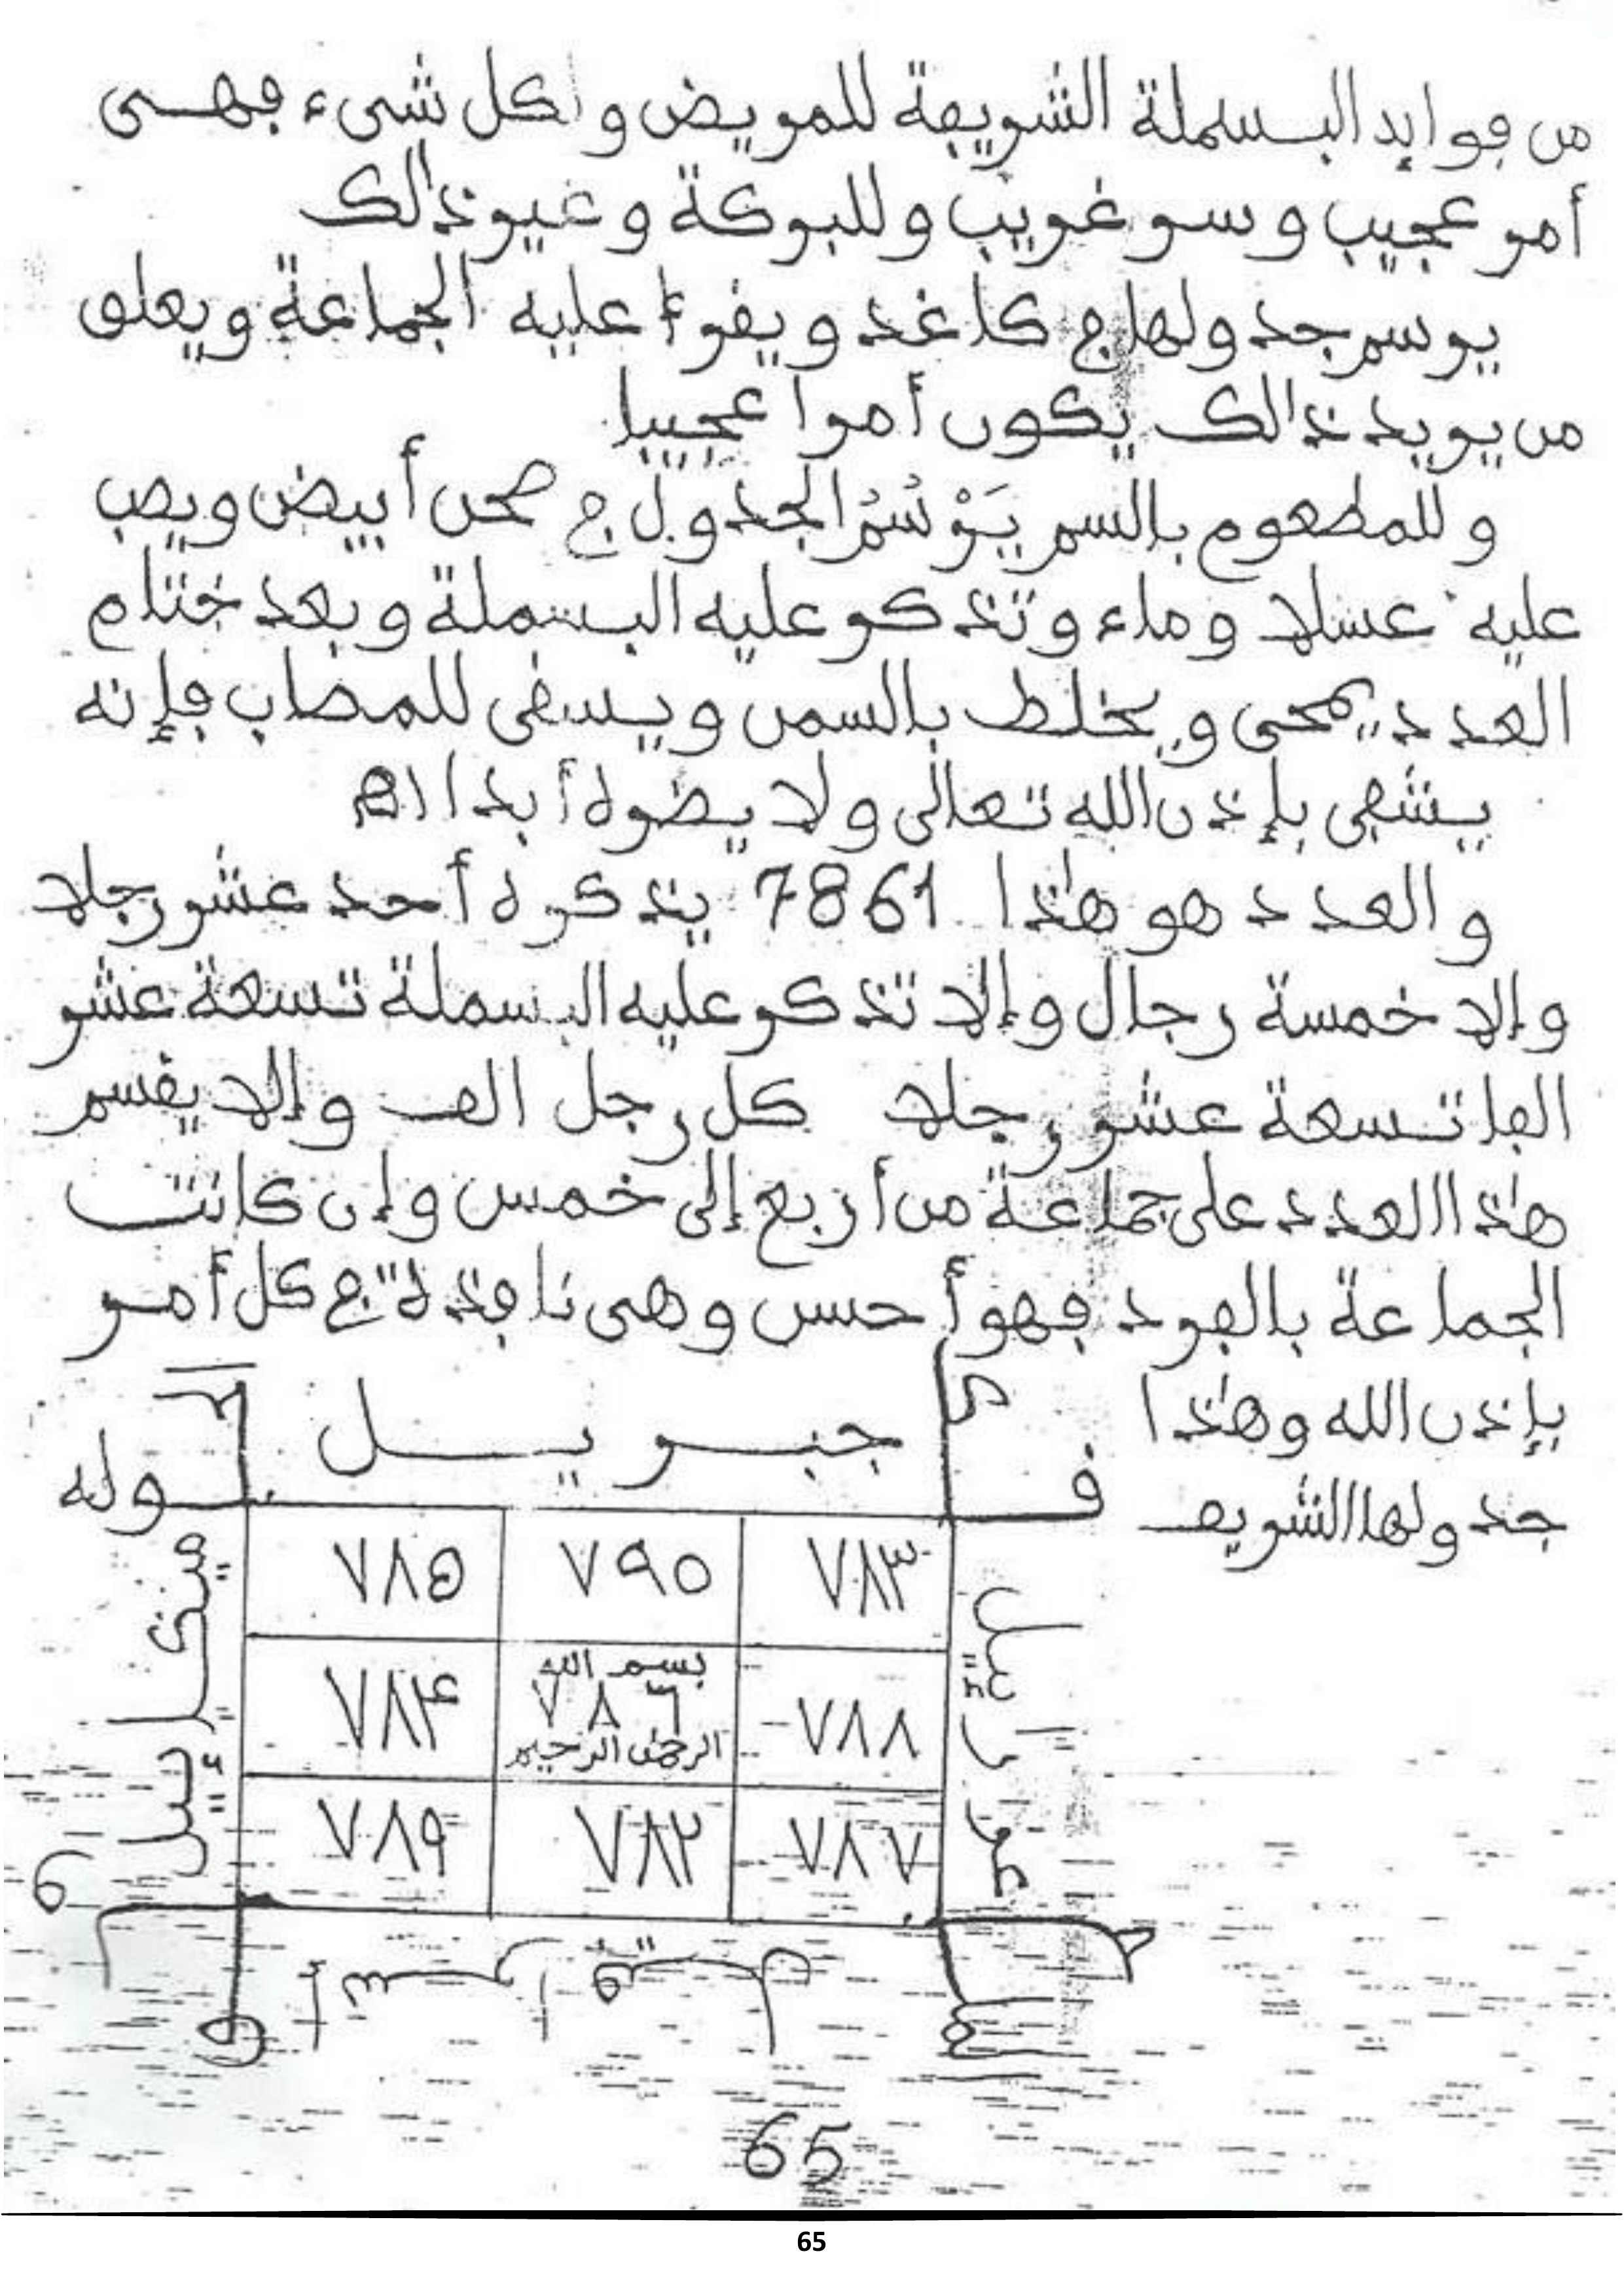 من فوايد البسملة الشريفة للمريض ولكل شىء فهى
أمر عجيب وسر غريب وللبركة وغير ذالك
يرسم جدولها في كاغد ويقرأ عليه الجماعة ويعلق
من يريد ذالك يكون أمرا عجيبا
وللمطعوم بالسم يَرْسُمُ الجدول في صحن أبيض ويصب
عليه عسلا وماء وتذكر عليه البسملة وبعد ختام
العدد يمحى ويخلط بالسمن ويسقى للمصاب فإنه
يشفى بإذن الله تعالى ولا يضره أبدا اه
والعدد هو هٰذا 7861 يذكره أحد عشر رجلا
وإلا خمسة رجال وإلا تذكر عليه البسملة تسعة عشر
الفا تسعة عشر رجلا كل رجل الف وإلا يقسم
هٰذا العدد على جماعة من أربع إلى خمس وإن كانت
الجماعة بالفرد فهو أحسن وهى نافذة في كل أمر
بإذن الله وهٰذا
جدولها الشريف
جبريل
قوله
٧٨٣ ٧٩٥ ٧٨٥
٧٨٨ بسم الله ٧٨٦ الرحمٰن الرحيم ٧٨٤
٧٨٧ ٧٨٢ ٧٨٩
ميخاإيل
65
65